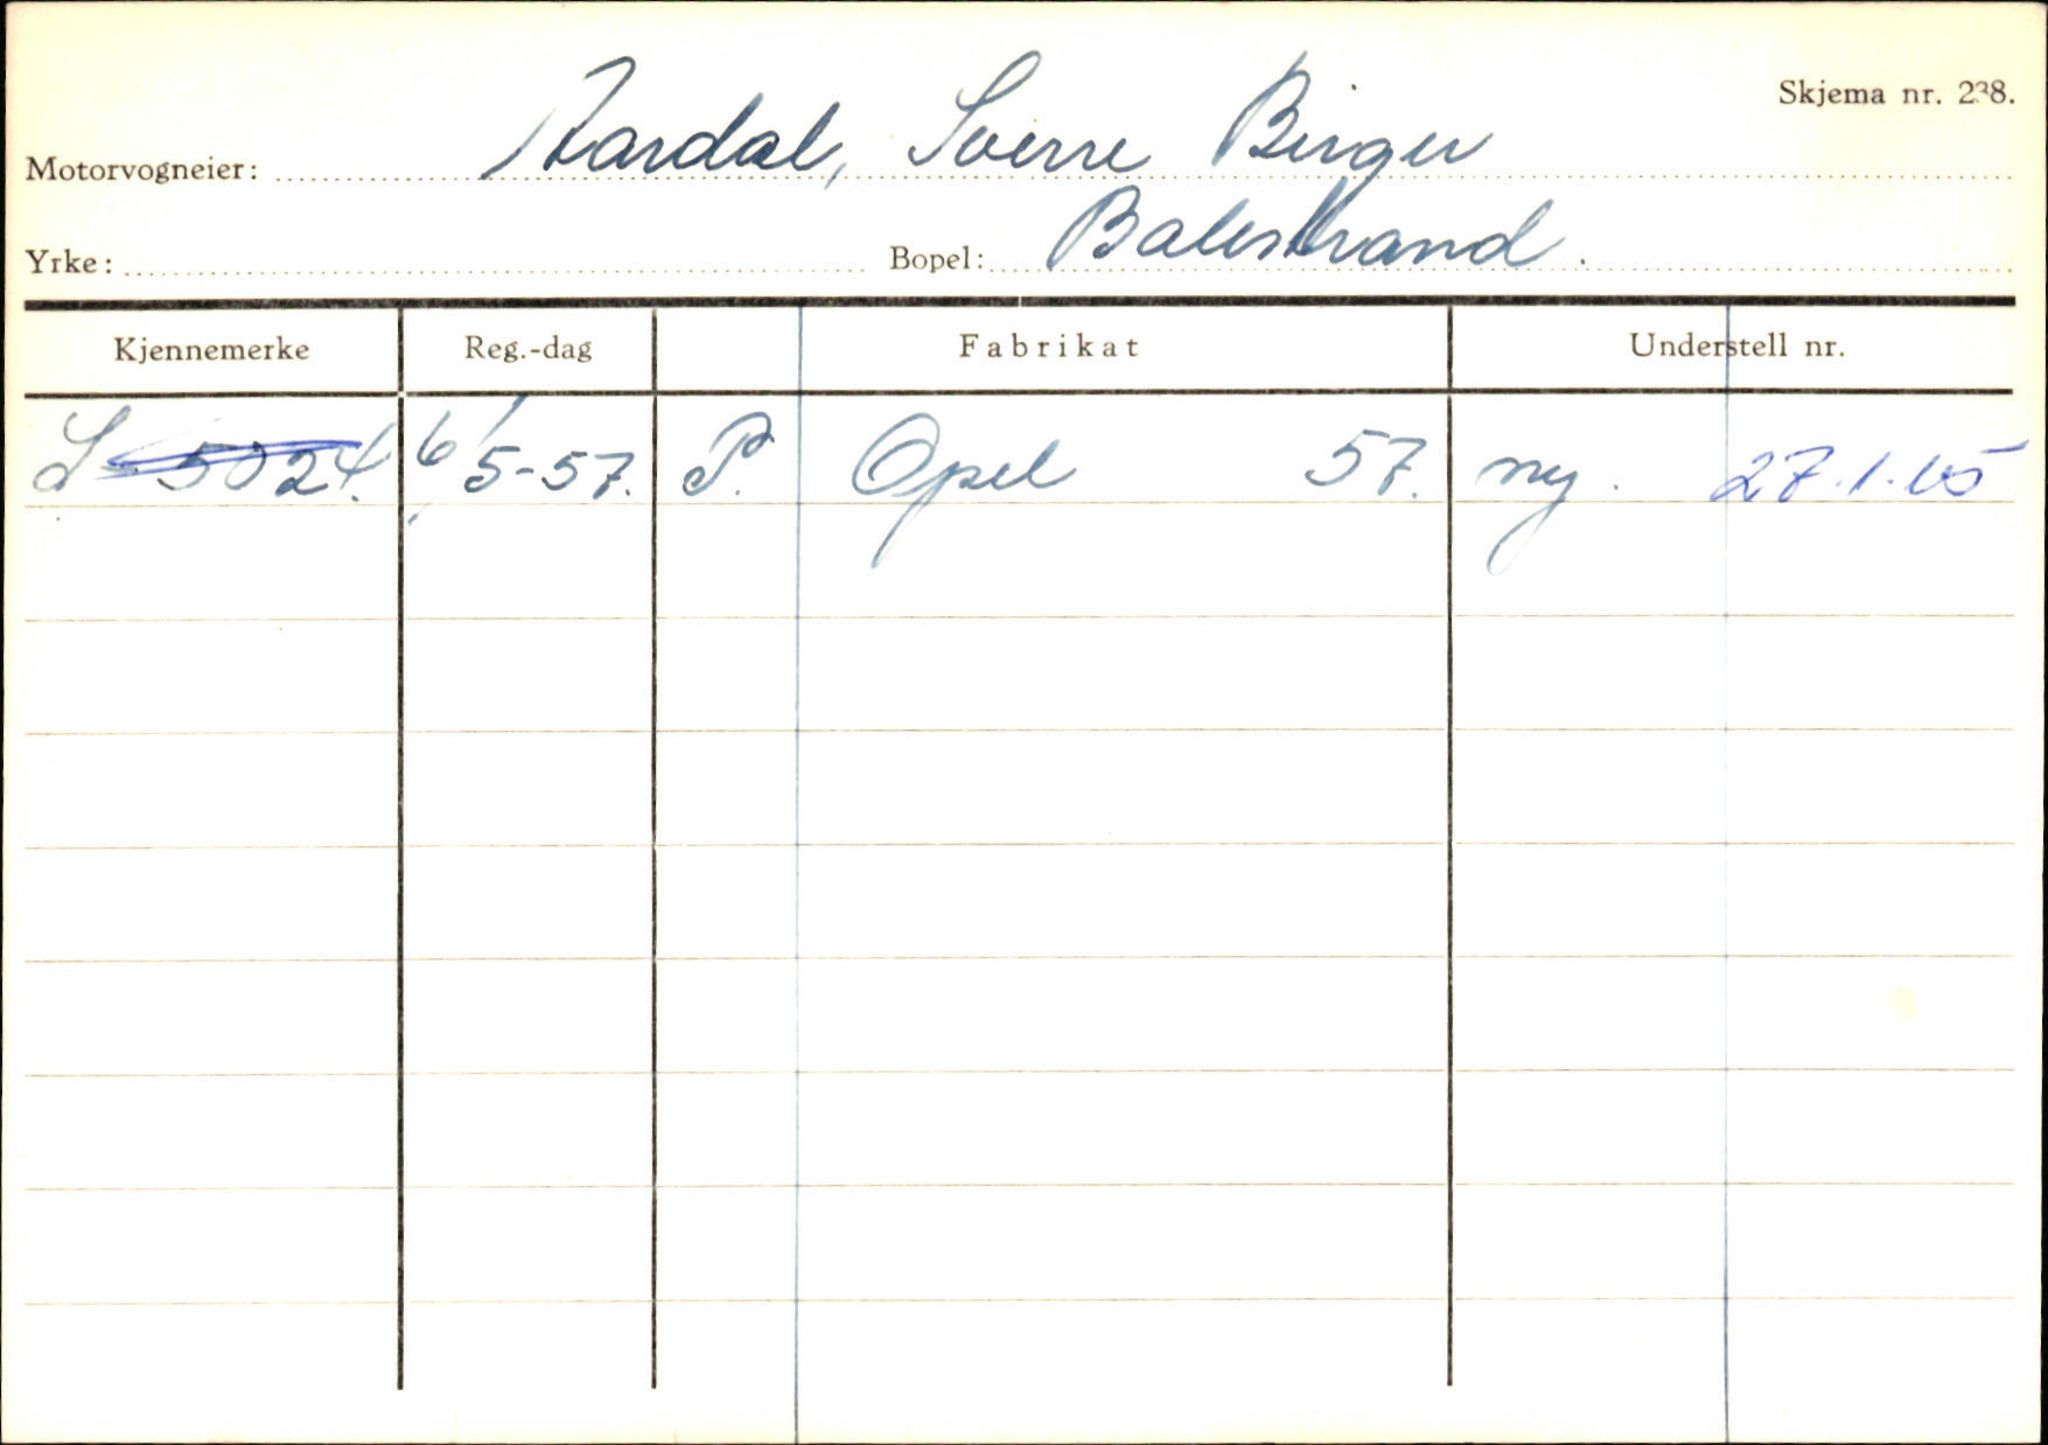 Skjema nr. 238.
Motorvogneier: Aardal, Sverre Birger
Yrke: Bopel: Balestrand.
Kjennemerke Reg.-dag Fabrikat Understell nr.
S-5024. 6/5-57. P. Opel 57. ny. 27.1.65